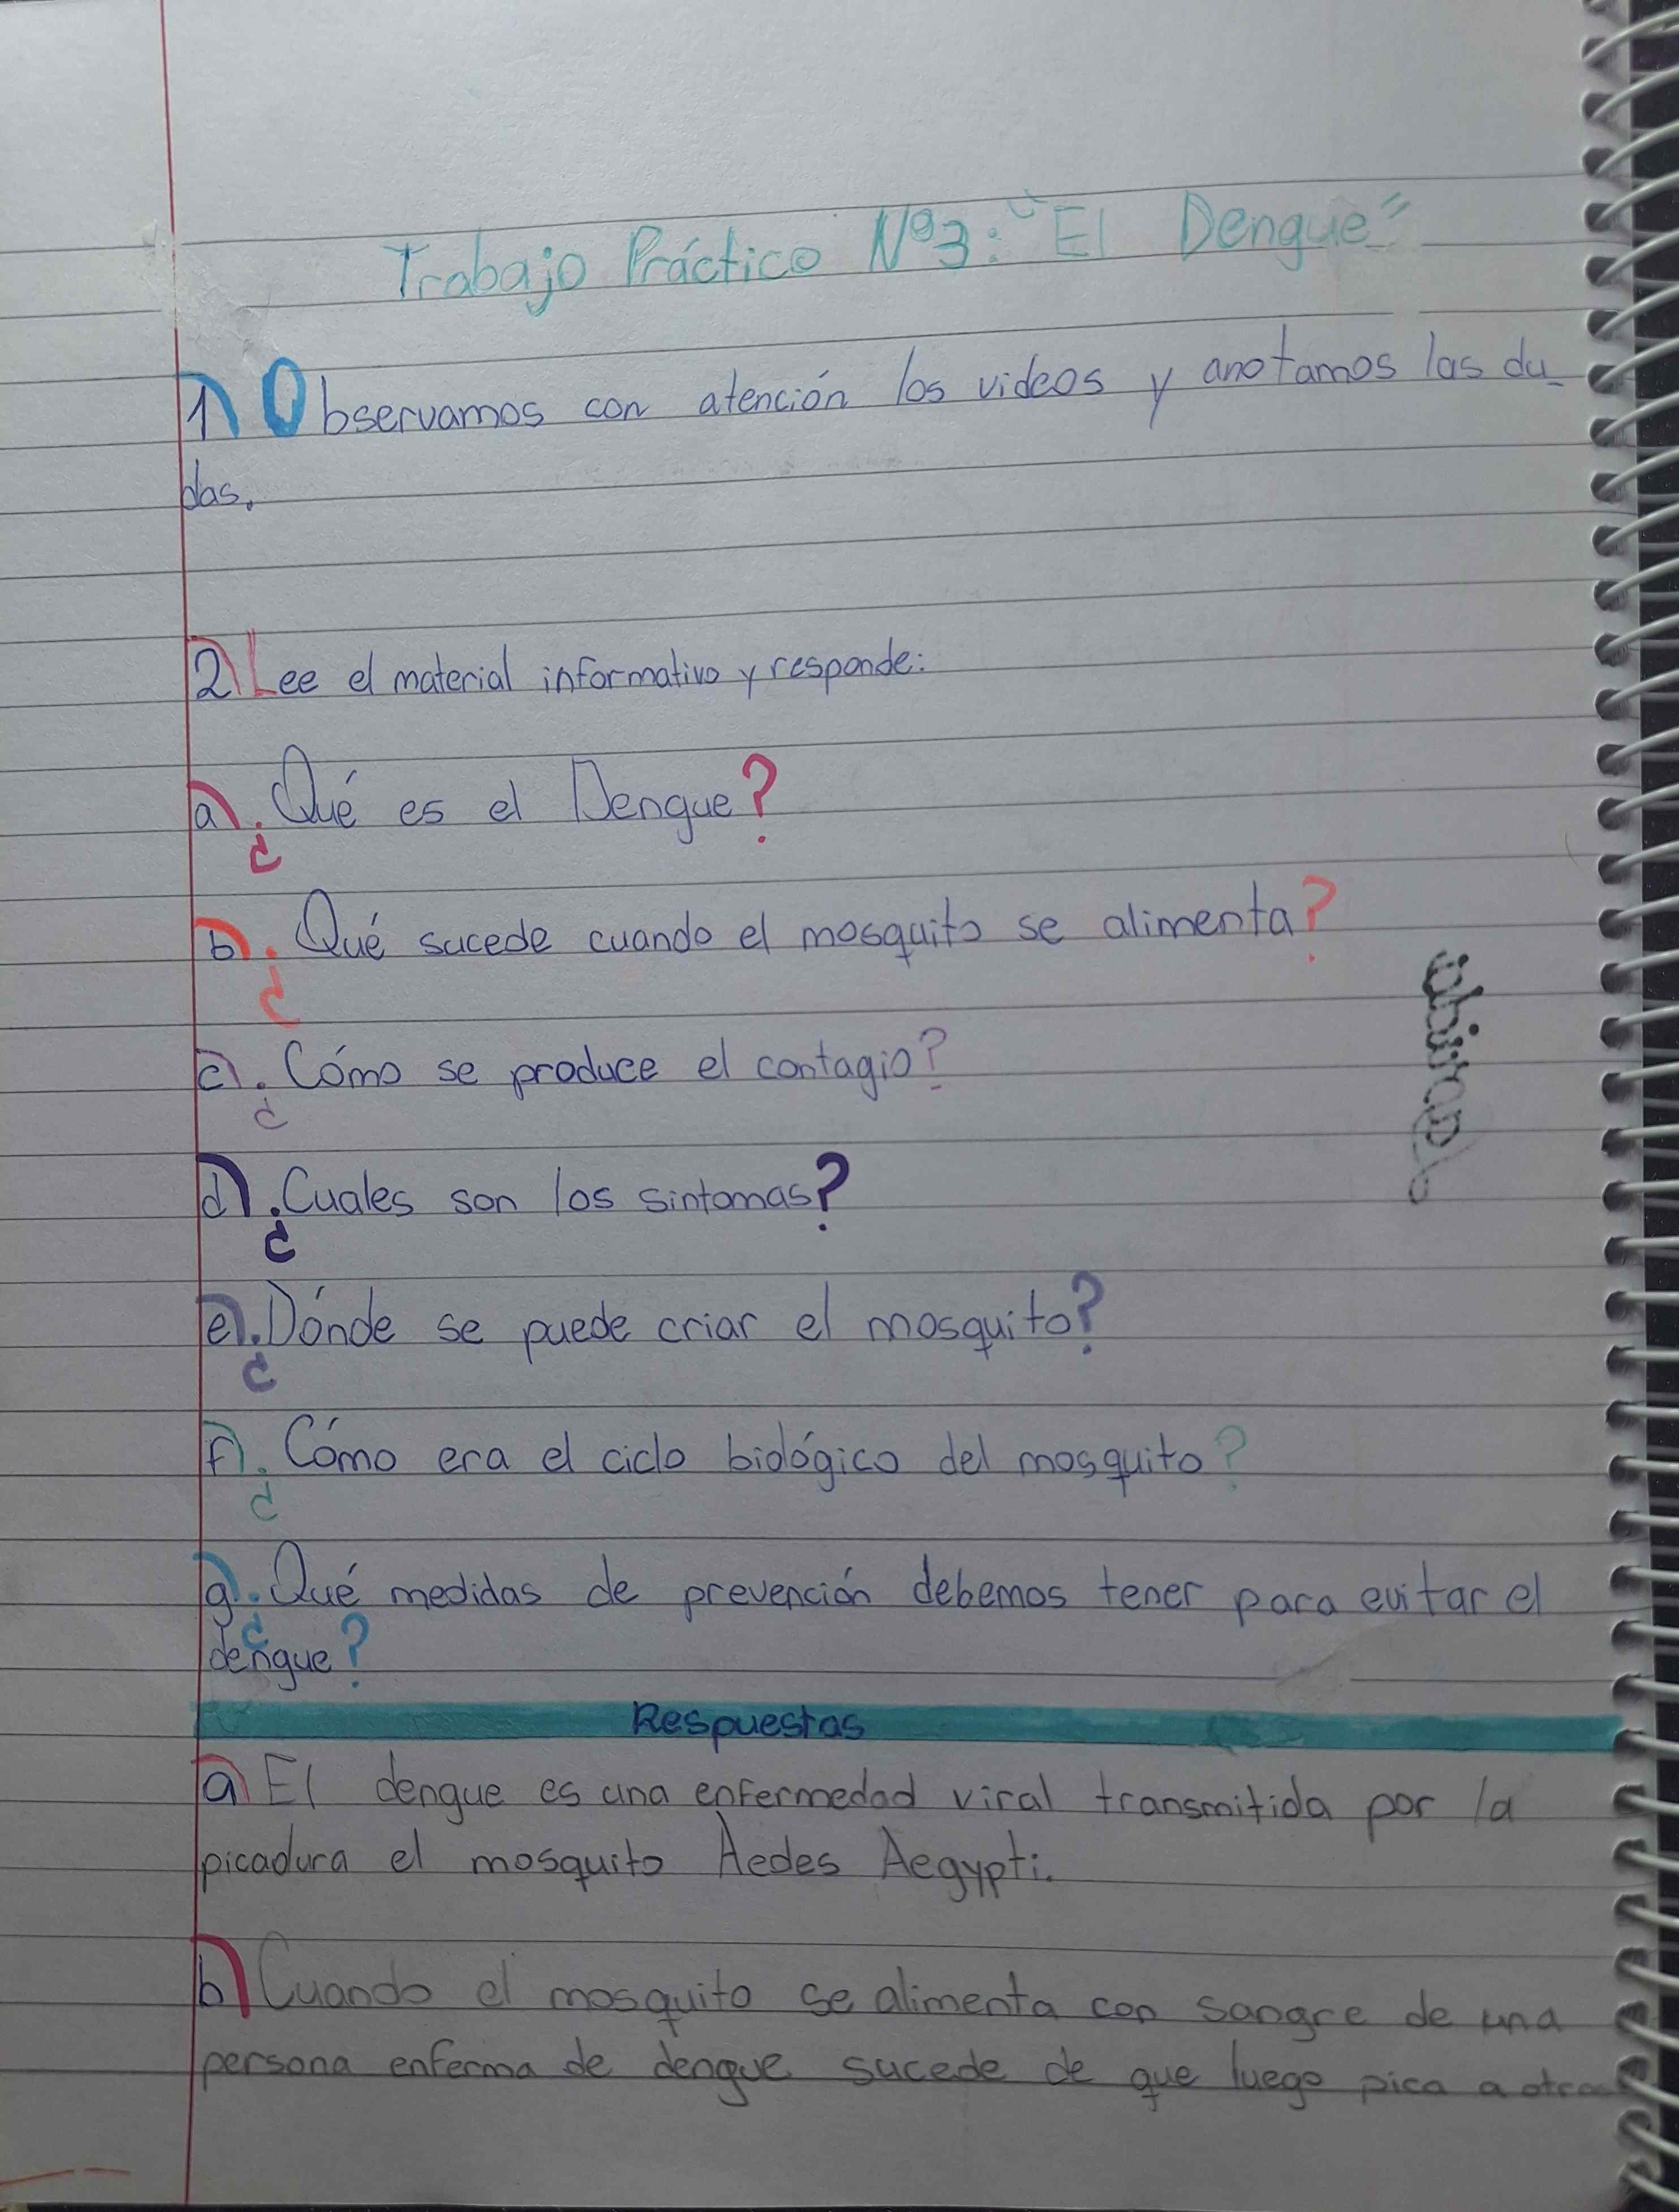 Trabajo Práctico Nº3: "El Dengue"
1) Observamos con atención los videos y anotamos las du-
das.
2) Lee el material informativo y responde:
a) ¿Qué es el Dengue?
b) ¿Qué sucede cuando el mosquito se alimenta?
c) ¿Cómo se produce el contagio?
d) ¿Cuales son los sintomas?
e) ¿Dónde se puede criar el mosquito?
f) ¿Cómo era el ciclo biológico del mosquito?
g) ¿Qué medidas de prevención debemos tener para evitar el
dengue?
Respuestas
a) El dengue es una enfermedad viral transmitida por la
picadura el mosquito Aedes Aegypti.
b) Cuando el mosquito se alimenta con sangre de una
persona enferma de dengue sucede de que luego pica a otra